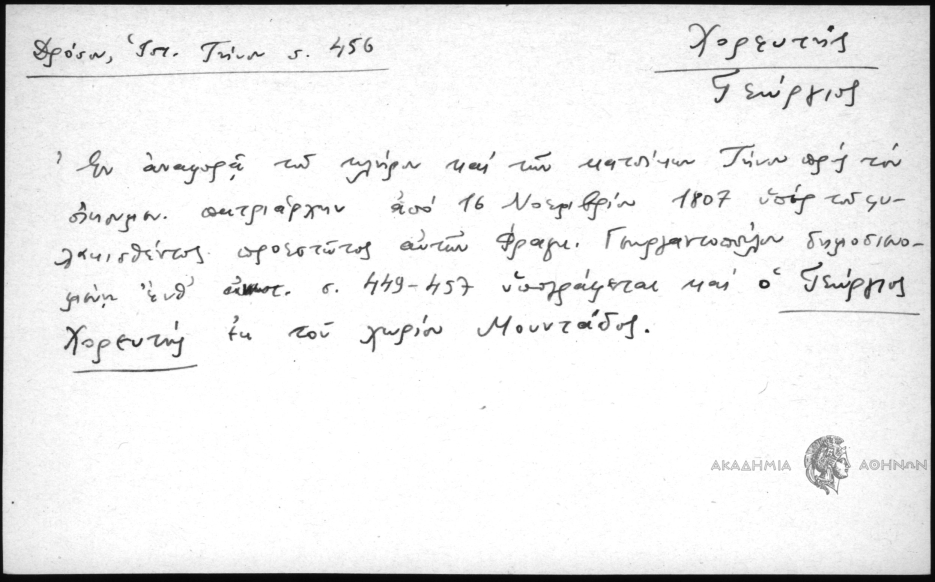 Δρόσου, Ἱστ. Τήνου σ. 456
Χορευτής
Γεώργιος
Ἐν ἀναφορᾷ τοῦ κλήρου καί τῶν κατοίκων Τήνου πρός τόν
οἰκουμεν. πατριάρχην ἀπό 16 Νοεμβρίου 1807 ὑπέρ τοῦ φυ-
λακισθέντος προεστῶτος αὐτῶν Φραγκ. Γεωργαντοπούλου δημοσιευο-
μένῃ ἔνθ' ἀνωτ. σ. 449-457 ὑπογράφεται καί ὁ Γεώργιος
Χορευτής ἐκ τοῦ χωρίου Μουντάδος.
ΑΚΑΔΗΜΙΑ ΑΘΗΝΩΝ